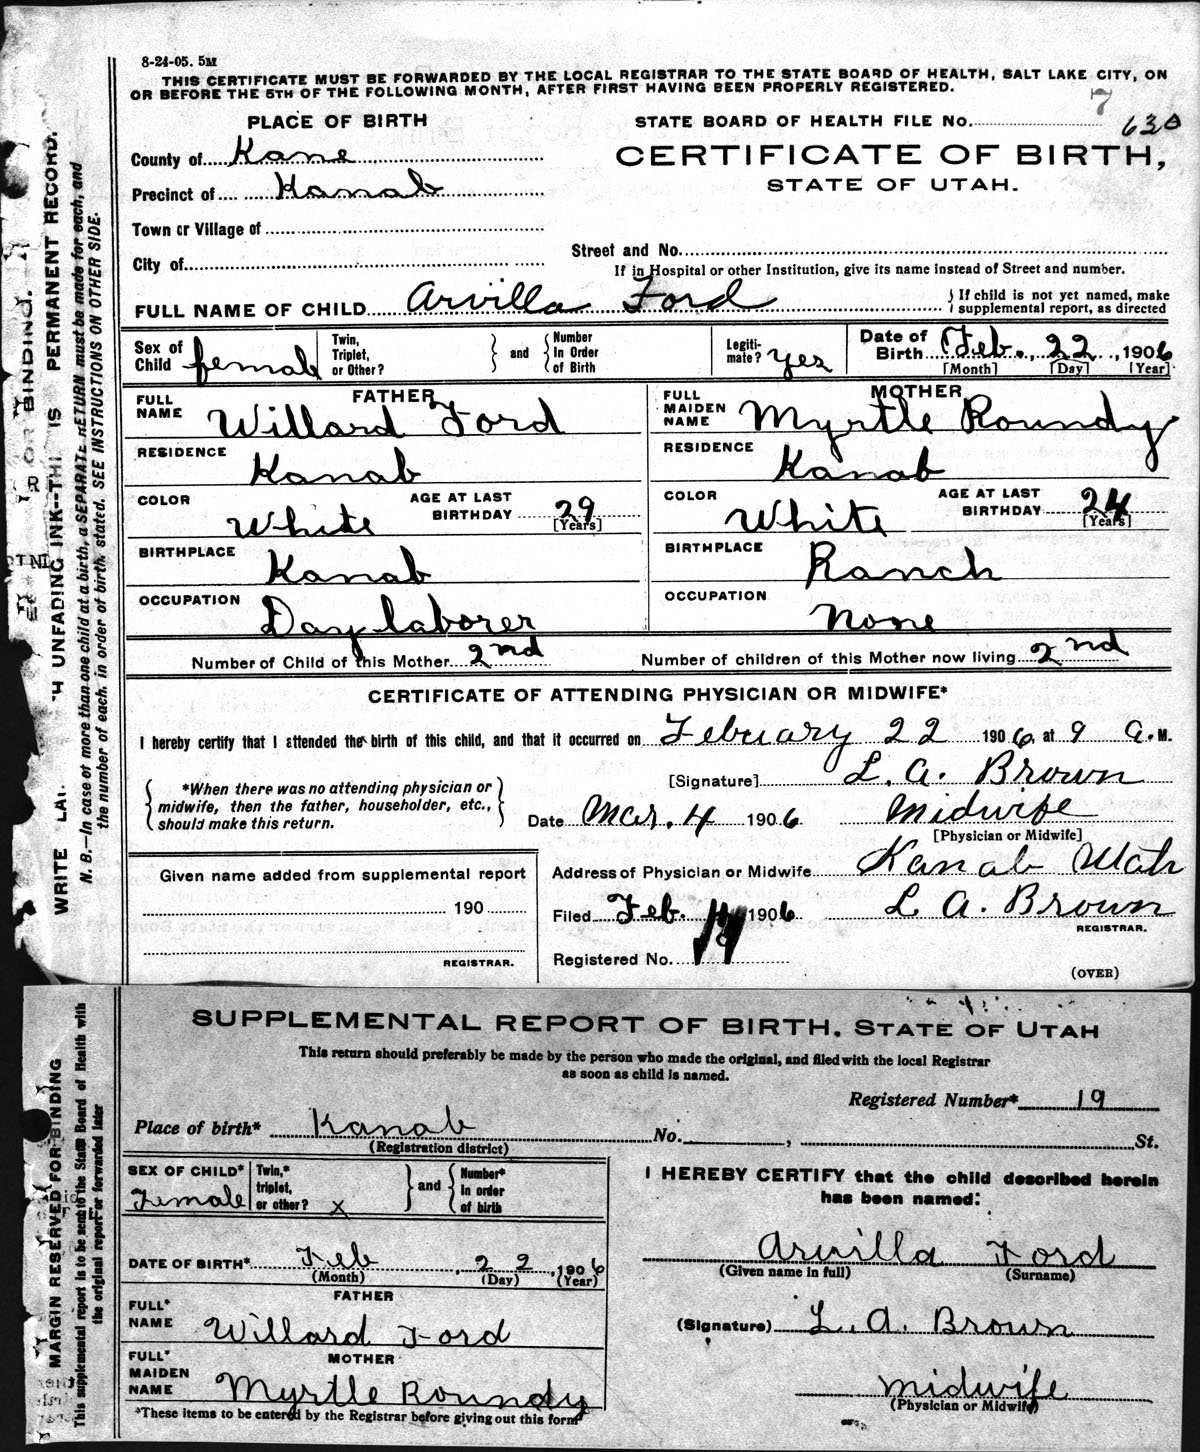 8-24-05. 5M
THIS CERTIFICATE MUST BE FORWARDED BY THE LOCAL REGISTRAR TO THE STATE BOARD OF HEALTH, SALT LAKE CITY, ON
OR BEFORE THE 5TH OF THE FOLLOWING MONTH, AFTER FIRST HAVING BEEN PROPERLY REGISTERED.
7
PLACE OF BIRTH
STATE BOARD OF HEALTH FILE No. 630
County of Kane
CERTIFICATE OF BIRTH,
Precinct of Kanab
STATE OF UTAH.
Town or Village of
Street and No.
City of
If in Hospital or other Institution, give its name instead of Street and number.
FULL NAME OF CHILD Arvilla Ford
If child is not yet named, make
supplemental report, as directed
Sex of Child female
Twin, Triplet, or Other?
and
Number In Order of Birth
Legiti-mate? yes
Date of Birth Feb., 22, 1906
[Month] [Day] [Year]
FATHER
FULL NAME Willard Ford
MOTHER
FULL MAIDEN NAME Myrtle Roundy
RESIDENCE Kanab
RESIDENCE Kanab
COLOR White
AGE AT LAST BIRTHDAY 29 [Years]
COLOR White
AGE AT LAST BIRTHDAY 24 [Years]
BIRTHPLACE Kanab
BIRTHPLACE Ranch
OCCUPATION Day laborer
OCCUPATION None
Number of Child of this Mother 2nd
Number of children of this Mother now living 2nd
CERTIFICATE OF ATTENDING PHYSICIAN OR MIDWIFE*
I hereby certify that I attended the birth of this child, and that it occurred on February 22 1906, at 9 A.M.
[Signature] L. A. Brown
*When there was no attending physician or
midwife, then the father, householder, etc.,
should make this return.
Date Mar. 4 1906 Midwife
[Physician or Midwife]
Given name added from supplemental report
190
REGISTRAR.
Address of Physician or Midwife Kanab Utah
Filed Feb. 1906 L A. Brown
REGISTRAR.
Registered No.
(OVER)
WRITE UNFADING INK--THI IS PERMANENT RECORD.
OR BINDING.
N. B.—In case of more than one child at a birth, a SEPARATE RETURN must be made for each, and
the number of each, in order of birth, stated. SEE INSTRUCTIONS ON OTHER SIDE.
SUPPLEMENTAL REPORT OF BIRTH, STATE OF UTAH
This return should preferably be made by the person who made the original, and filed with the local Registrar
as soon as child is named.
Registered Number* 19
Place of birth* Kanab No. , St.
(Registration district)
SEX OF CHILD* Female
Twin,* triplet, or other? x
and
Number* In order of birth
I HEREBY CERTIFY that the child described herein
has been named:
DATE OF BIRTH* Feb , 22 , 1906
(Month) (Day) (Year)
Arvilla Ford
(Given name in full) (Surname)
FATHER
FULL* NAME Willard Ford
(Signature) L. A. Brown
MOTHER
FULL* MAIDEN NAME Myrtle Roundy
midwife
(Physician or Midwife)
*These items to be entered by the Registrar before giving out this form
MARGIN RESERVED FOR BINDING
This supplemental report is to be sent to the State Board of Health with
the original report or forwarded later